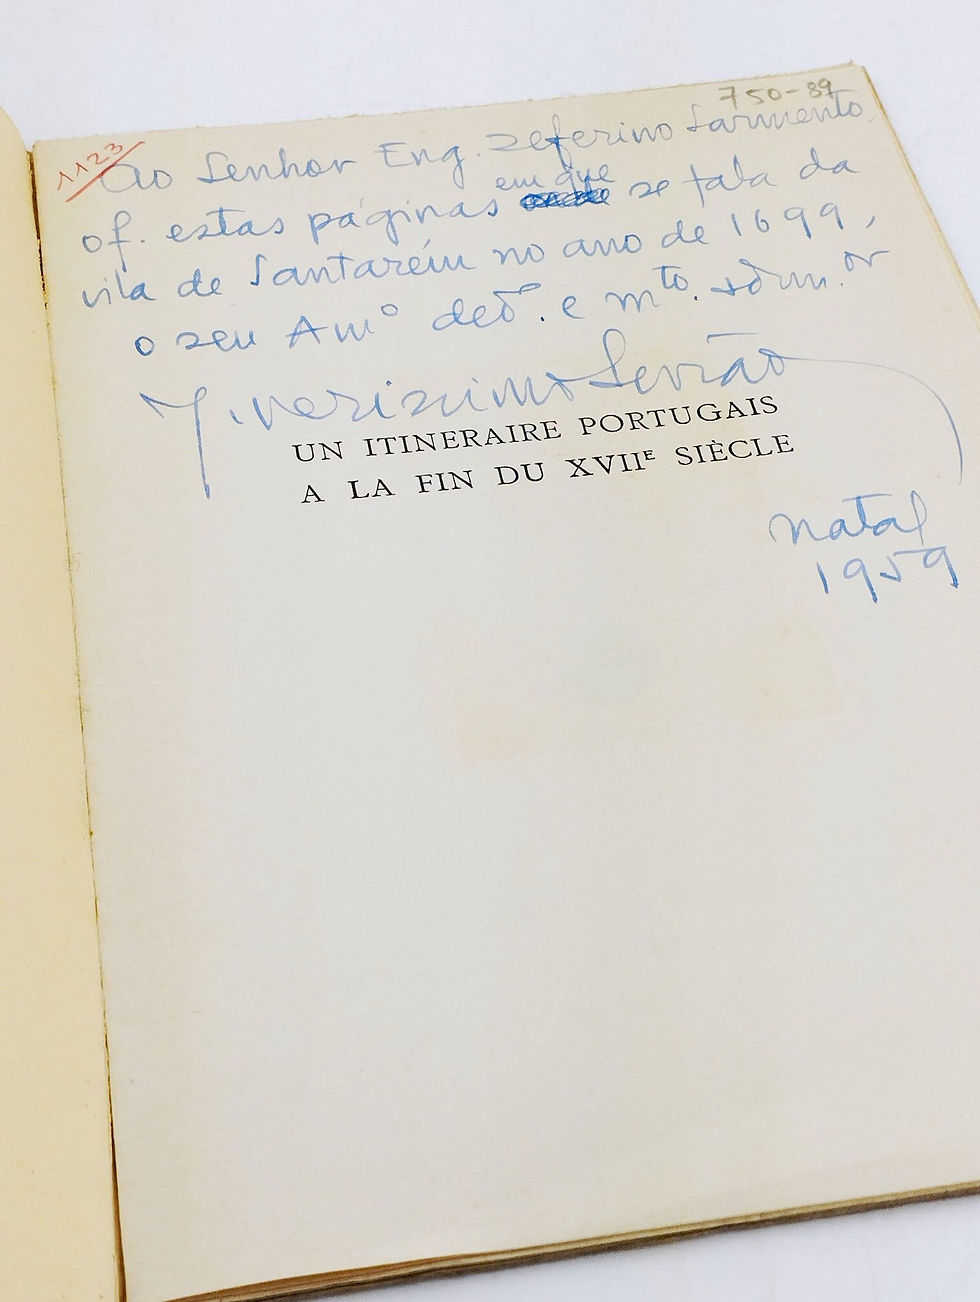 750-89
1123
Ao Senhor Eng. Zeferino Sarmento,
of. estas páginas em que se fala da
vila de Santarém no ano de 1699,
o seu Amº dedº. e mto. admor
J. Verissimo Serrão
UN ITINERAIRE PORTUGAIS
A LA FIN DU XVIIE SIÈCLE
Natal
1959